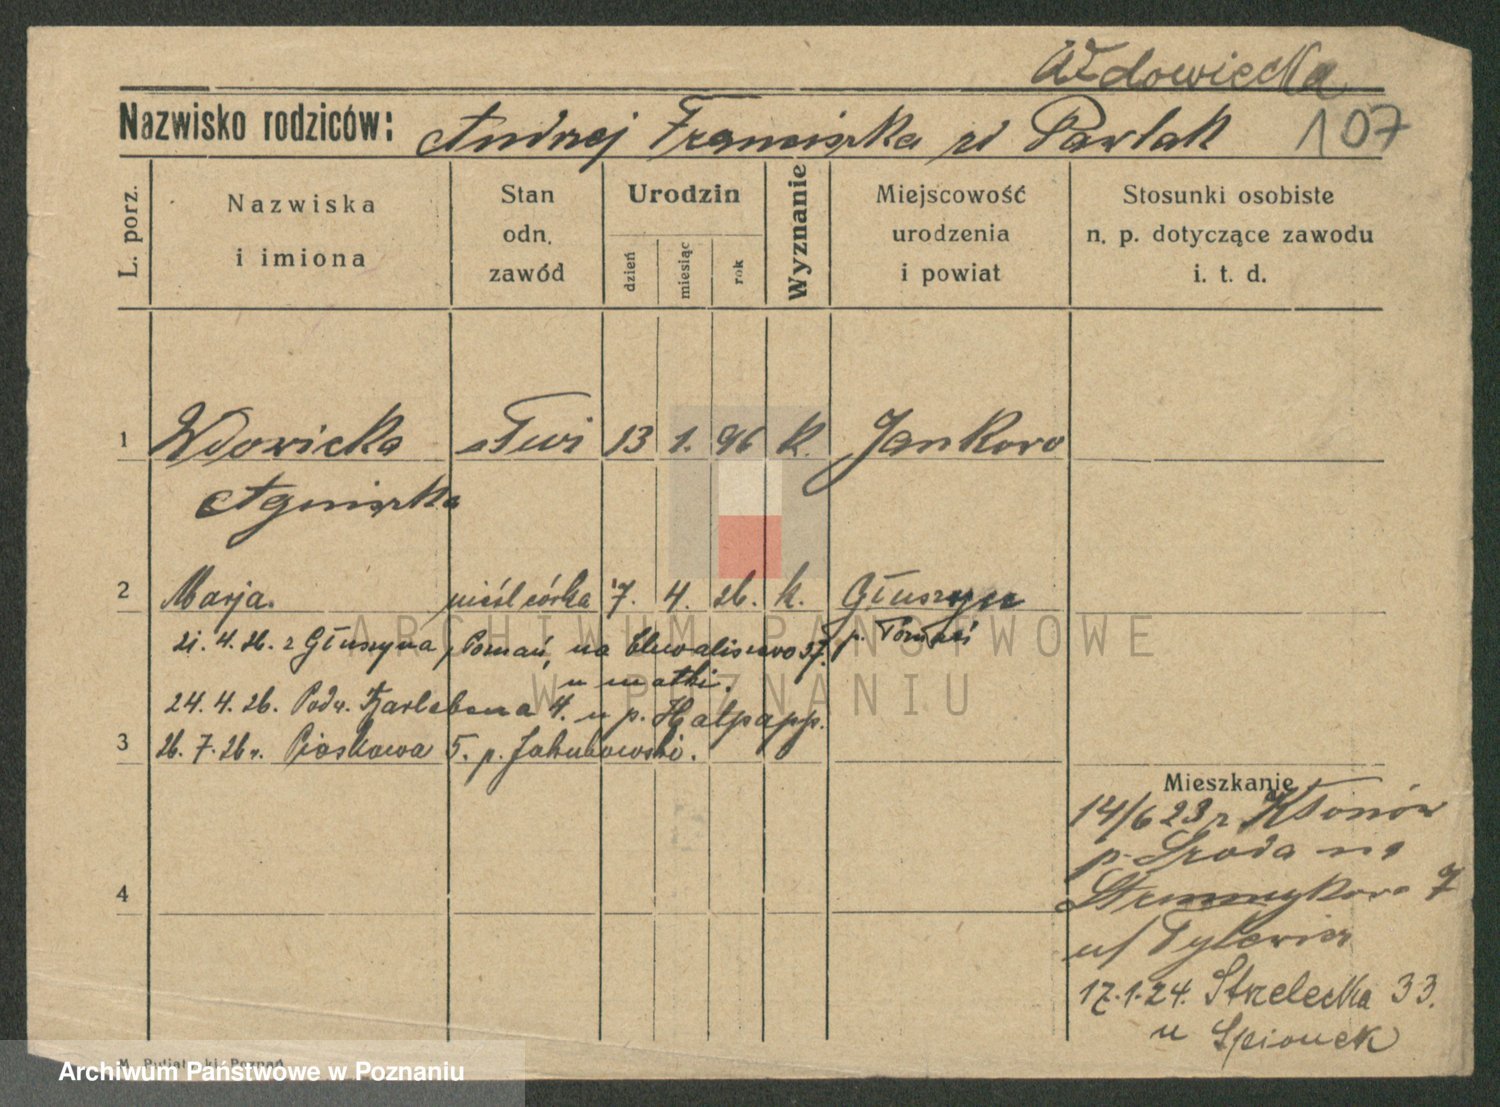 Wdowiecka
Nazwisko rodziców: Andrzej Franciszka zd Pawlak 107
L. porz.
Nazwiska i imiona
Stan odn. zawód
Urodzin
dzień
miesiąc
rok
Wyznanie
Miejscowość urodzenia i powiat
Stosunki osobiste n. p. dotyczące zawodu i. t. d.
1 Wdowicka 13 1. 96 k. Jankowo
Agniszka
2 Marja. nieśl córka 7. 4. 26. k. Głuszyna
21. 4. 26. z Głuszyna, Poznań, na 37. p. Poznań
u matki.
24. 4. 26. Podw. 4. u p.
3 26. 7. 26 r. Piaskowa 5. p. Jakubowski.
Mieszkanie
14/6 23 z Kłonów
p. Środa na
4 7
u/ Tylewicz
17.1.24. Strzelecka 33.
u Spionek
ARCHIWUM PAŃSTWOWE
W POZNANIU
Archiwum Państwowe w Poznaniu